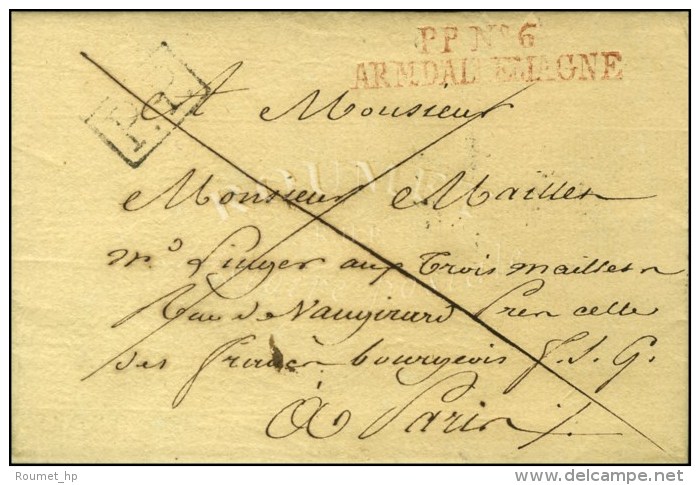 PP N° 6
ARM. D'ALLEMAGNE
P.P.
A Monsieur
ROUMET
Monsieur Mailler
Md Linger aux Trois mailletz
Rue de Vaugirard Près celle
des francs bourgeois f. S. G.
à Paris
Roumet_hp
© delcampe.net